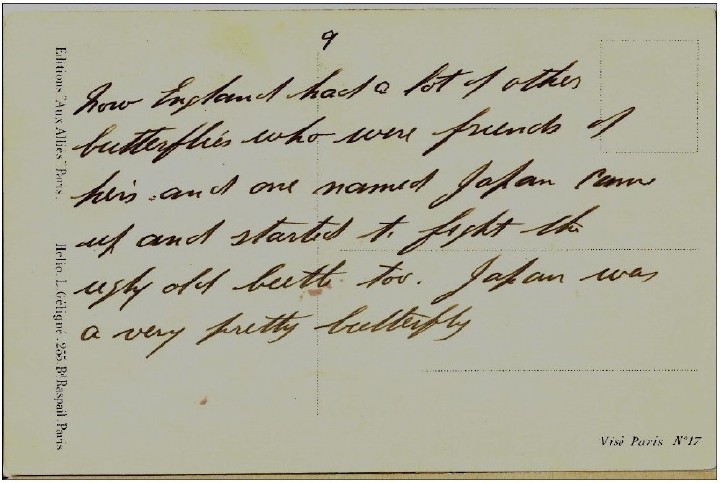 9
Now England had a lot of other
butterflies who were friends of
hers and one named Japan came
up and started to fight the
ugly old beetle too. Japan was
a very pretty butterfly
Editions "Aux Alliés" Paris.
Hélio. L. Géligné. 255. Bd Raspail Paris
Visé Paris N°17